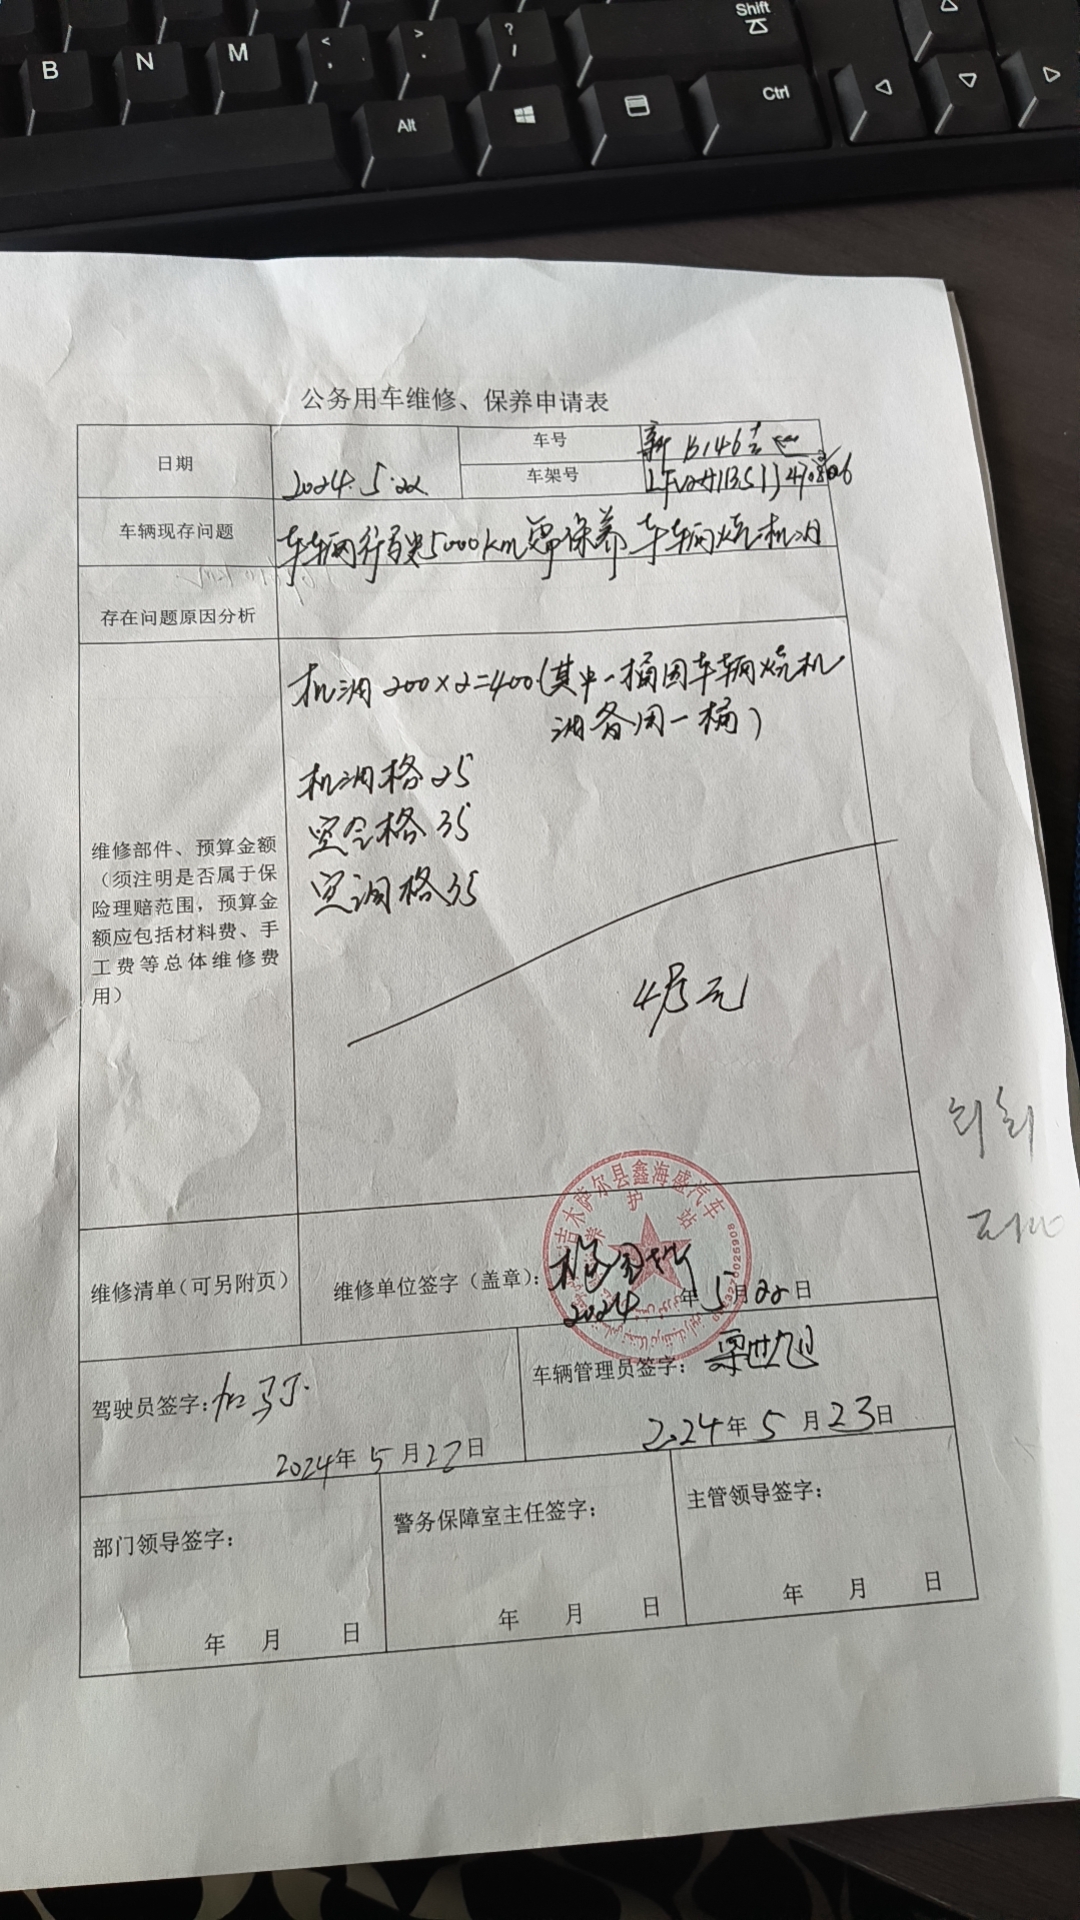 Shift
B N M < , > . ? /
Alt Ctrl
公务用车维修、保养申请表
日期
2024.5.22
车号
新B146
车架号
车辆现存问题
车辆行驶5000km需保养 车辆烧机油
存在问题原因分析
机油200×2=400(其中一桶因车辆烧机
油备用一桶)
机油格25
空气格35
空调格35
维修部件、预算金额
(须注明是否属于保
险理赔范围，预算金
额应包括材料费、手
工费等总体维修费
用)
元
吉木萨尔县鑫海盛汽车
养护站
维修清单(可另附页)
维修单位签字(盖章):
2024年5月22日
驾驶员签字:
2024年5月22日
车辆管理员签字: 梁世旭
2024年5月23日
部门领导签字:
年 月 日
警务保障室主任签字;
年 月 日
主管领导签字;
年 月 日